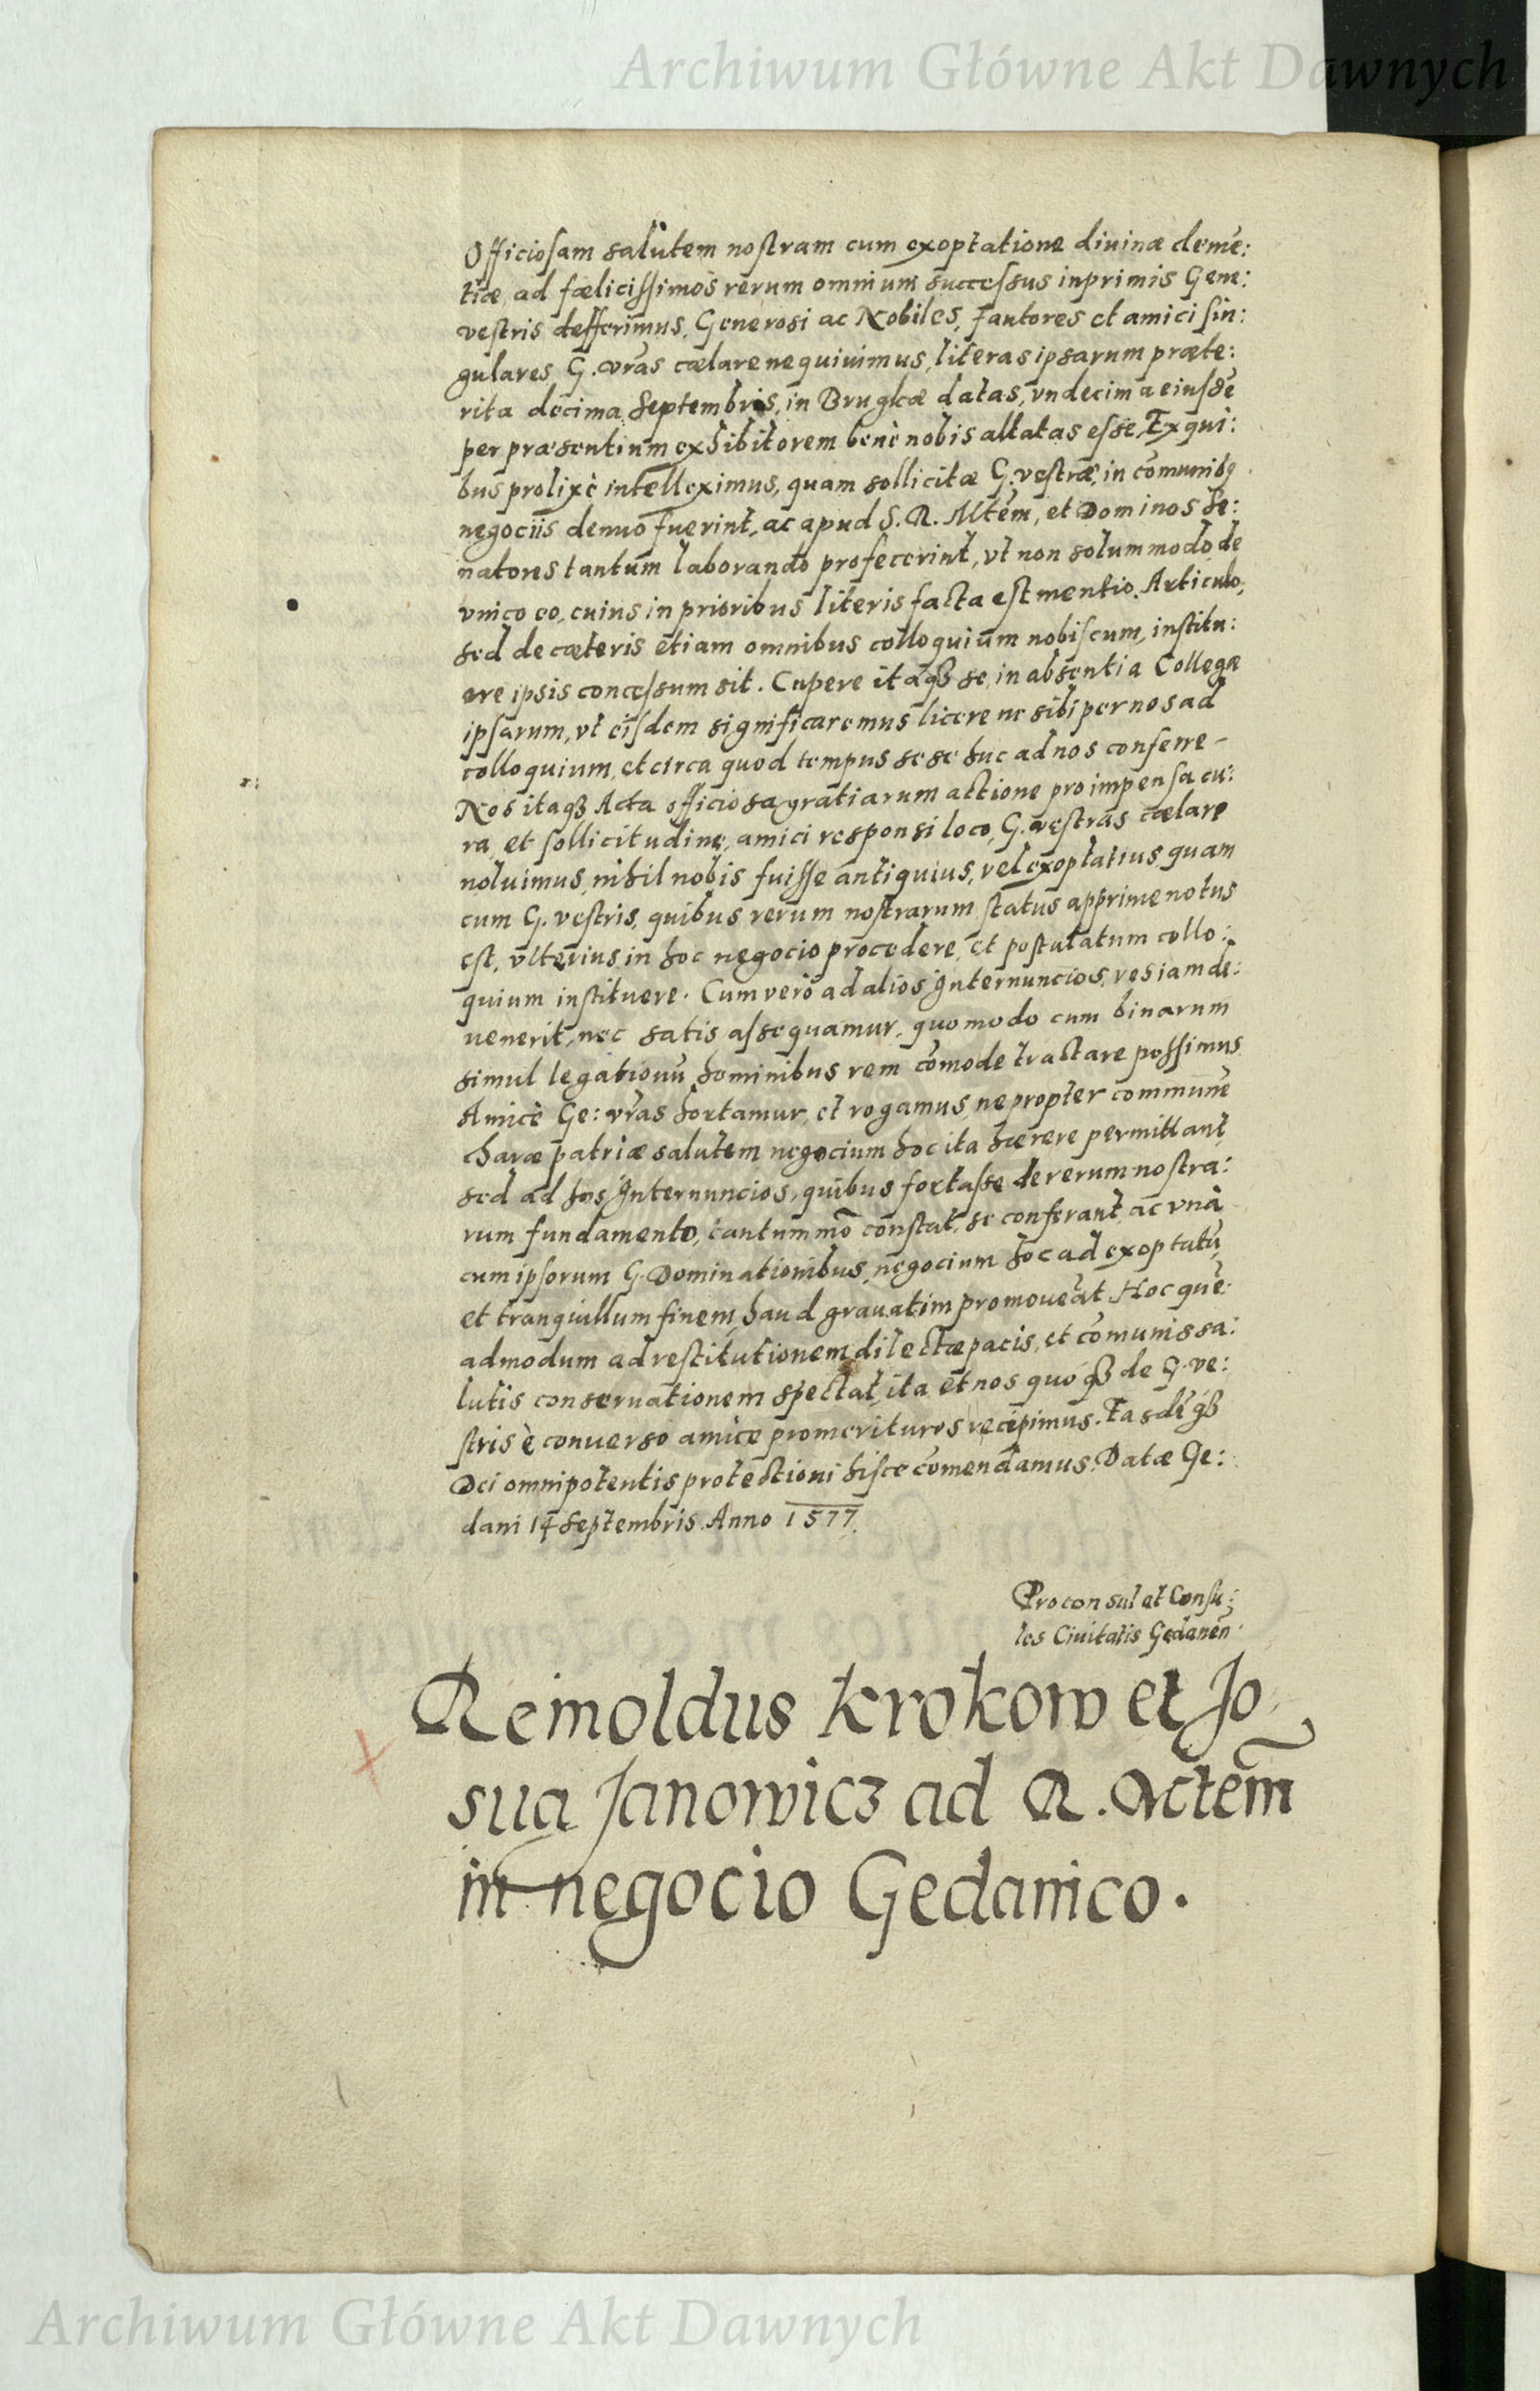 Archiwum Główne Akt Dawnych
Officiosam salutem nostram cum exoptatione diuinæ cleme͂:
tiæ, ad fœlicissimos rerum omnium successus inprimis Gene:
vestris defferimus, Generosi ac Nobiles, Fautores et amici sin:
gulares, G. vr̃as cælare nequiuimus, literas ipsarum præte:
rita decima Septembris, in Brugkæ datas, vndecima eiusdẽ
per præsentium exhibitorem benè nobis allatas esse, Ex qui:
bus prolixè intelleximus, quam sollicitæ G. vestræ, in com̃unibꝯ
negociis denuo fuerint, ac apud S. R. Mtẽm, et Dominos Se:
natores tantum laborando profecerint, vt non solummodo de
vnico eo, cuius in prioribus literis facta est mentio, Articulo,
sed de cæteris etiam omnibus colloquium nobiscum, institu:
ere ipsis concessum sit. Cupere itaqꝫ se, in absentia Collegæ
ipsarum, vt eisdem significaremus licere ne sibi per nos ad
colloquium, et circa quod tempus sese huc ad nos conferre -
Nos itaqꝫ Acta officiosa gratiarum actione pro impensa cu:
ra et sollicitudine, amici responsi loco, G. vestras cælare
noluimus, nihil nobis fuisse antiquius, vel exoptatius quam
cum G. vestris, quibus rerum nostrarum status apprime notus
est, vlterius in hoc negocio procedere, et postulatum collo:
quium instituere. Cum verò ad alios Internuncios, res iam de:
uenerit, nec satis assequamur, quomodo cum binarum
simul legationũ hominibus rem com̃ode tractare possimus
Amicè Ge: vr̃as hortamur, et rogamus, ne propter communẽ
charæ patriæ salutem, negocium hoc ita hærere permittant,
sed ad hos Internuncios, quibus fortasse de rerum nostra:
rum fundamento, tantummõ constat, se conferant, ac vnà
cum ipsorum G. Dominationibus, negocium hoc ad exoptatũ,
et tranquillum finem, haud grauatim promoueãt. Hoc quẽ
admodum ad restitutionem dilectæ pacis, et com̃unis sa:
lutis conseruationem spectat, ita et nos quoqꝫ de G. ve:
stris è conuerso amice promerituros recipimus. Easdẽqꝫ
Dei omnipotentis protectioni hisce com̃endamus. Datæ Ge:
dani 14 Septembris. Anno 1577.
Proconsul et Consu:
les Ciuitatis Gedanen̄
Reinoldus Krokow et Jo
sua Janowicz ad R. Mtem̃
in negocio Gedanico.
Archiwum Główne Akt Dawnych